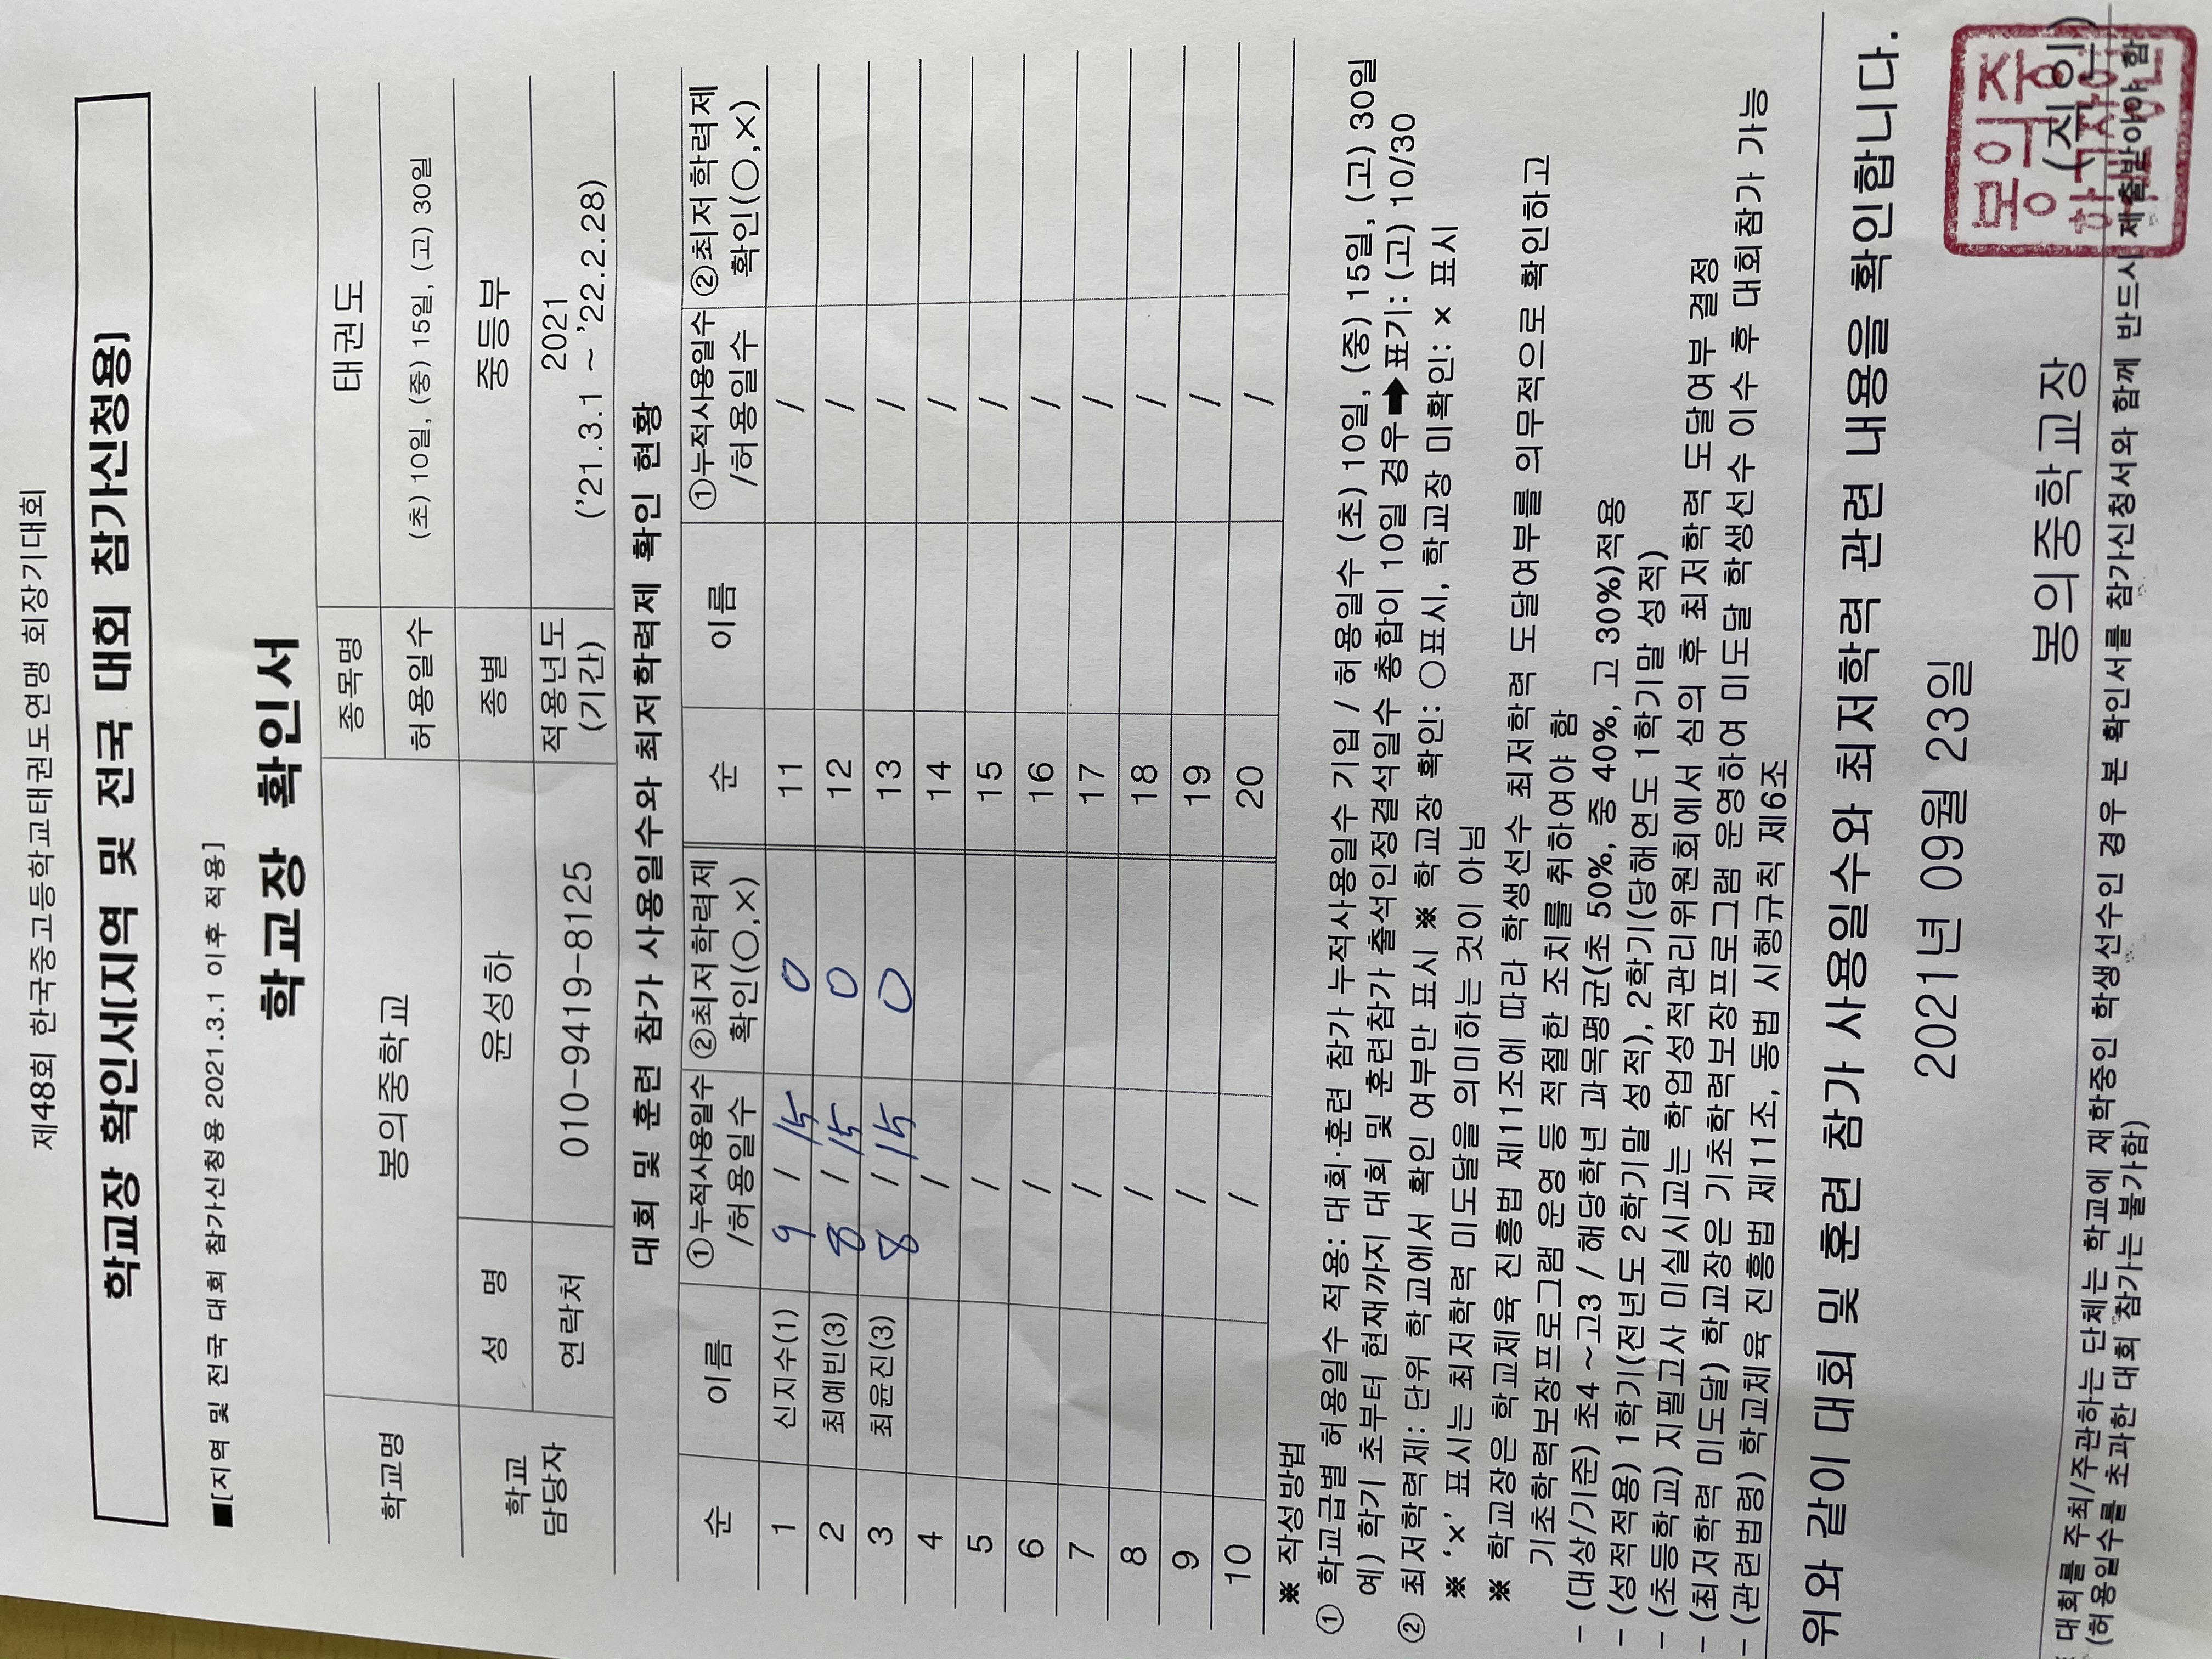 제48회 한국중고등학교태권도연맹 회장기대회
학교장 확인서[지역 및 전국 대회 참가신청용]
■[지역 및 전국 대회 참가신청용 2021.3.1 이후 적용]
학교장 확인서
학교명 봉의중학교 종목명 태권도
허용일수 (초) 10일, (중) 15일, (고) 30일
학교 담당자 성 명 윤성하 종별 중등부
연락처 010-9419-8125 적용년도 (기간) 2021 ('21.3.1 ~ '22.2.28)
대회 및 훈련 참가 사용일수와 최저학력제 확인 현황
순 이름 ①누적사용일수 /허용일수 ②최저학력제 확인(○,×) 순 이름 ①누적사용일수 /허용일수 ②최저학력제 확인(○,×)
1 신지수(1) 9 / 15 0 11 /
2 최예빈(3) 8 / 15 0 12 /
3 최윤진(3) 8 / 15 0 13 /
4 / 14 /
5 / 15 /
6 / 16 /
7 / 17 /
8 / 18 /
9 / 19 /
10 / 20 /
※ 작성방법
① 학교급별 허용일수 적용: 대회·훈련 참가 누적사용일수 기입 / 허용일수 (초) 10일, (중) 15일, (고) 30일
예) 학기 초부터 현재까지 대회 및 훈련참가 출석인정결석일수 총합이 10일 경우➡표기: (고) 10/30
② 최저학력제: 단위 학교에서 확인 여부만 표시 ※ 학교장 확인: ○표시, 학교장 미확인: × 표시
※ '×' 표시는 최저학력 미도달을 의미하는 것이 아님
※ 학교장은 학교체육 진흥법 제11조에 따라 학생선수 최저학력 도달여부를 의무적으로 확인하고
기초학력보장프로그램 운영 등 적절한 조치를 취하여야 함
- (대상/기준) 초4 ~ 고3 / 해당학년 과목평균(초 50%, 중 40%, 고 30%)적용
- (성적적용) 1학기(전년도 2학기말 성적), 2학기(당해연도 1학기말 성적)
- (초등학교) 지필고사 미실시교는 학업성적관리위원회에서 심의 후 최저학력 도달여부 결정
- (최저학력 미도달) 학교장은 기초학력보장프로그램 운영하여 미도달 학생선수 이수 후 대회참가 가능
- (관련법령) 학교체육 진흥법 제11조, 동법 시행규칙 제6조
위와 같이 대회 및 훈련 참가 사용일수와 최저학력 관련 내용을 확인합니다.
2021년 09월 23일
봉의중학교장 (직인)
대회를 주최/주관하는 단체는 학교에 재학중인 학생선수인 경우 본 확인서를 참가신청서와 함께 반드시 제출받아야 함
(허용일수를 초과한 대회 참가는 불가함)